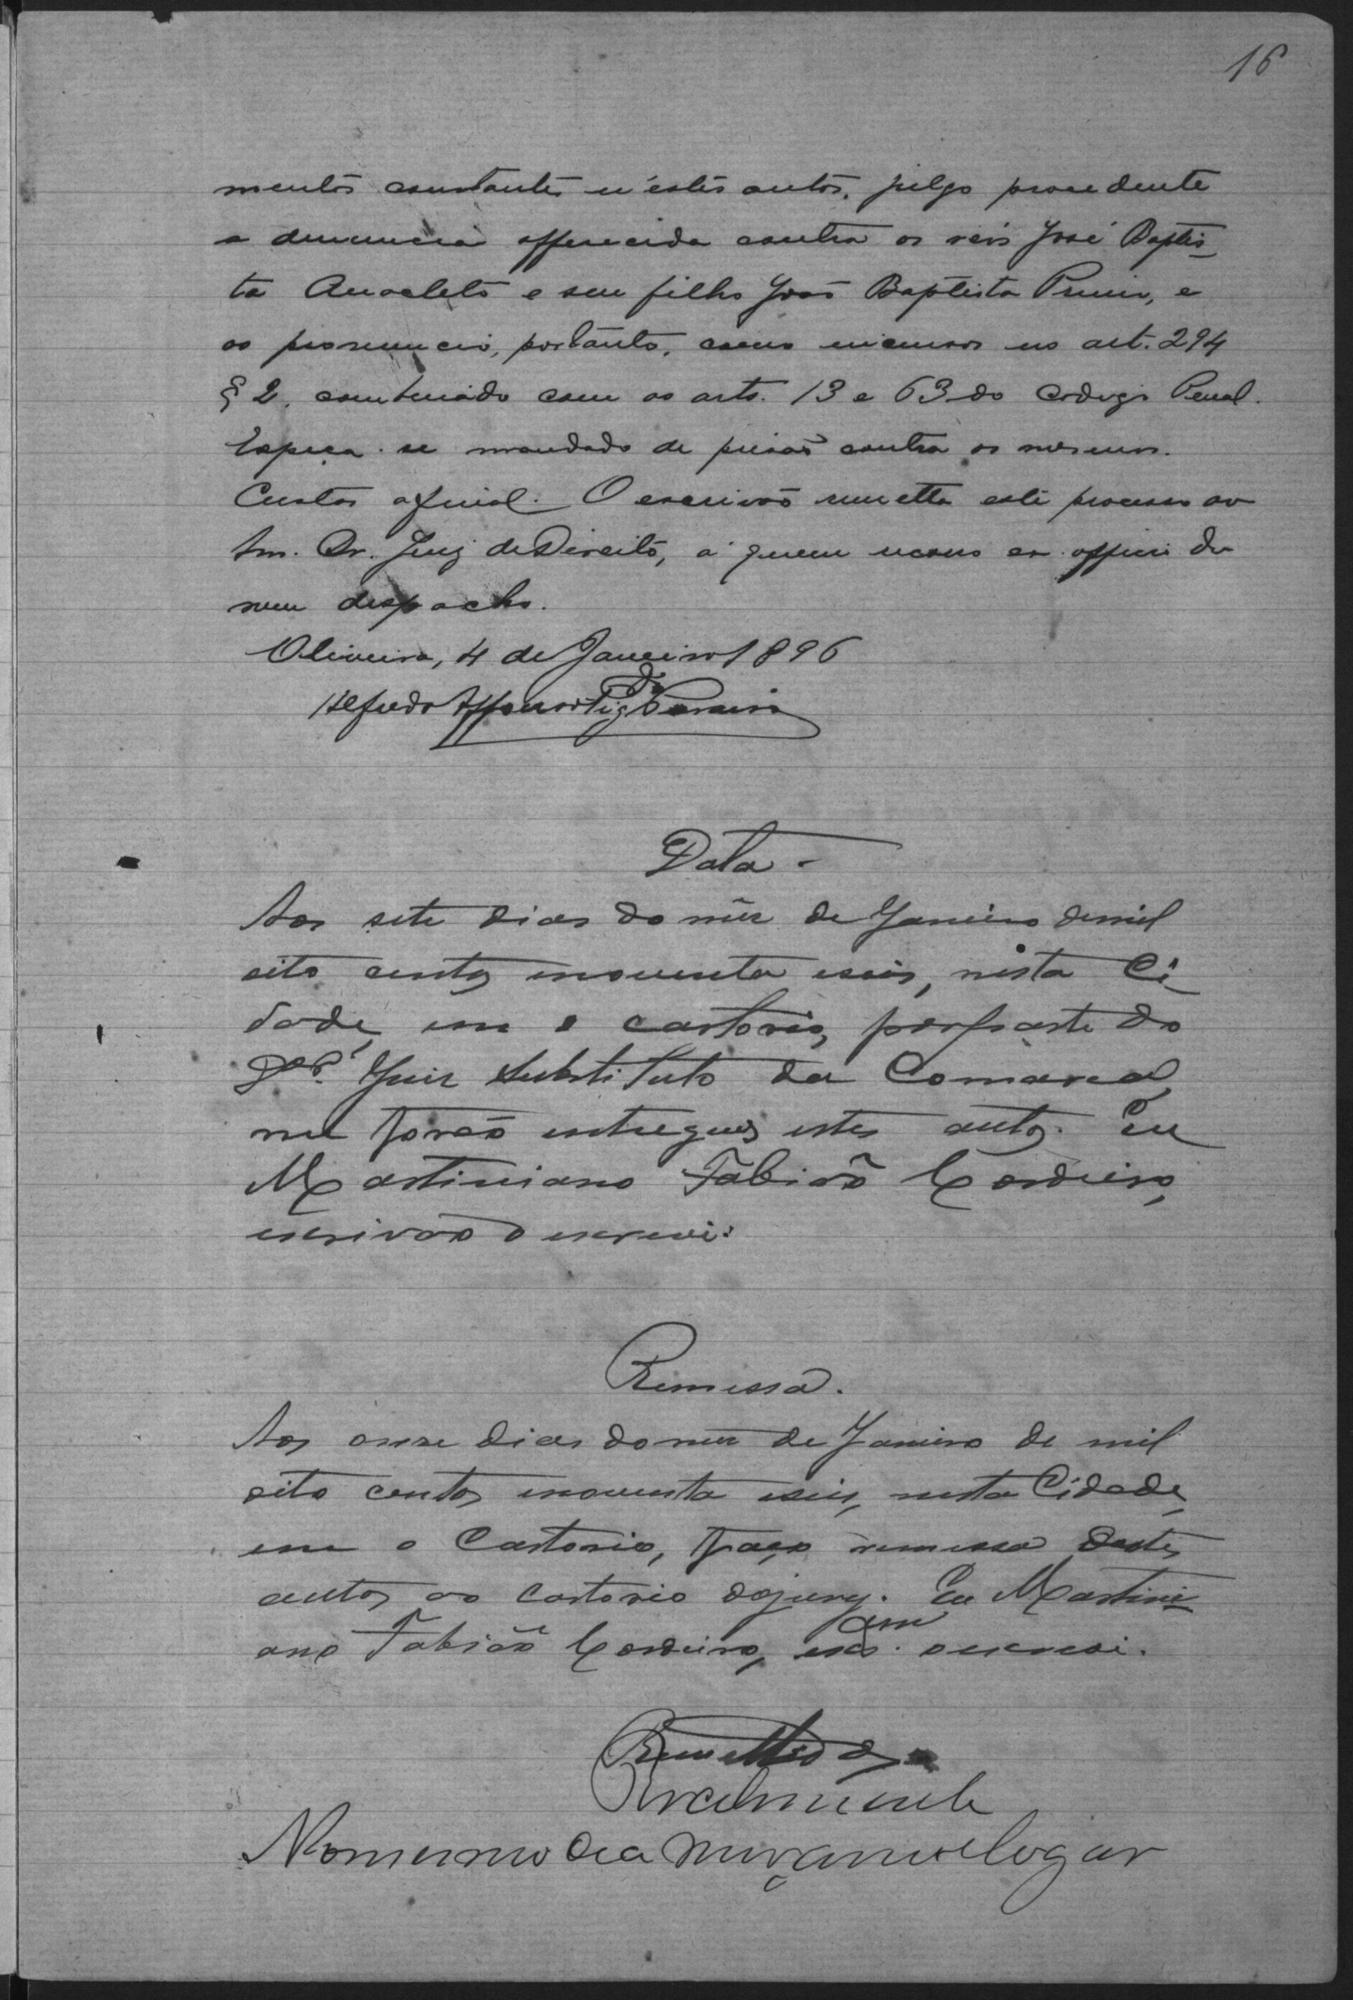 16
mentos constantes n'estes autos, julgo procedente
a denuncia offerecida contra os réis José Baptis-
ta Anacleto e seu filho João Baptista Primo, e
os pronuncio, portanto, como incursos no art. 294
§ 2, combinado com os arts. 13 e 63 do Codigo Penal.
Expeça-se mandado de prisão contra os mesmos.
Custas afinal. O escrivão remetta este processo ao
Sm. Dr. Juiz de Direito, a quem recorro ex-officio do
meu despacho.
Oliveira, 4 de Janeiro 1896
Alfredo Affonso
Data -
Aos sete dias do mêz de Janeiro de mil
oito centos e noventa e seis, nesta Ci-
dade, em o cartorio, por parte do
Juiz Substituto da Comarca,
me forão entregues estes autos. Eu
Martiniano Fabião Cordeiro,
escrivão o escrevi.
Remessa.
Aos onze dias do mez de Janeiro de mil
oito centos e noventa e seis, nesta Cidade,
em o Cartorio, faço remessa destes
autos ao cartorio do jury. Eu Martini-
ano Fabião Cordeiro, escam. o escrevi.
Remettidos
Recebimento
No mesmo dia mez anno e logar